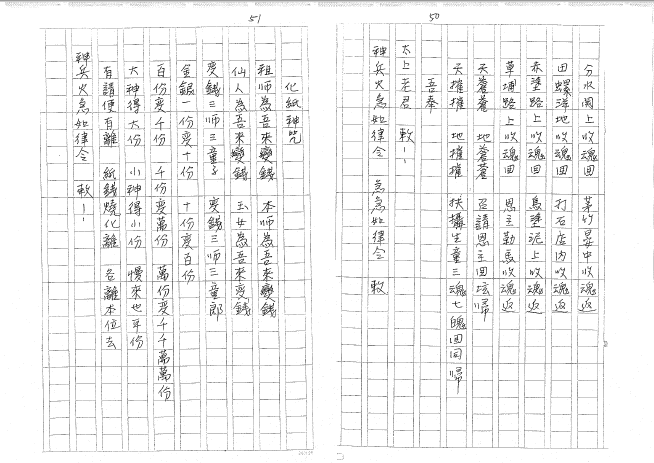 50
分水関上收魂回 茅竹晏中收魂返
田螺洋地收魂回 打石店内收魂返
赤塗路上收魂回 烏塗泥上收魂返
草埔路上收魂回 恩主勒馬收魂返
天蒼蒼 地蒼蒼 召請恩主回坛帰
天摧摧 地摧摧 扶攝生童三魂七魄回回帰
吾奉
太上老君 敕
神兵火急如律令 急急如律令 敕
51
化紙神咒
祖師為吾來變錢 本師為吾來變錢
仙人為吾來變錢 玉女為吾來变錢
変錢三師三童子 変錢三師三童郎
金銀一份変十份 十份变百份
百份变千份 千份変萬份 萬份变千千萬萬份
大神得大份 小神得小份 慢來也平份
有請便有離 紙錢燒化離 各離本位去
神兵火急如律令 敕